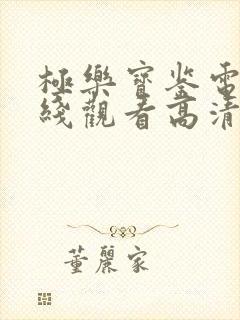 極樂寶鉴電
綫觀看高清
董麗家